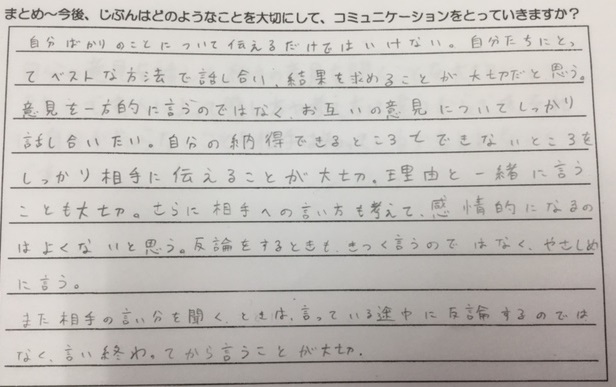 まとめ〜今後、じぶんはどのようなことを大切にして、コミュニケーションをとっていきますか？
自分ばかりのことについて伝えるだけではいけない。自分たちにとっ
てベストな方法で話し合い、結果を求めることが大切だと思う。
意見を一方的に言うのではなく、お互いの意見についてしっかり
話し合いたい。自分の納得できるところとできないところを
しっかり相手に伝えることが大切。理由と一緒に言う
ことも大切。さらに相手への言い方も考えて、感情的になるの
はよくないと思う。反論をするときも、きつく言うのではなく、やさしめ
に言う。
また相手の言い分を聞くときは、言っている途中に反論するのでは
なく、言い終わってから言うことが大切。